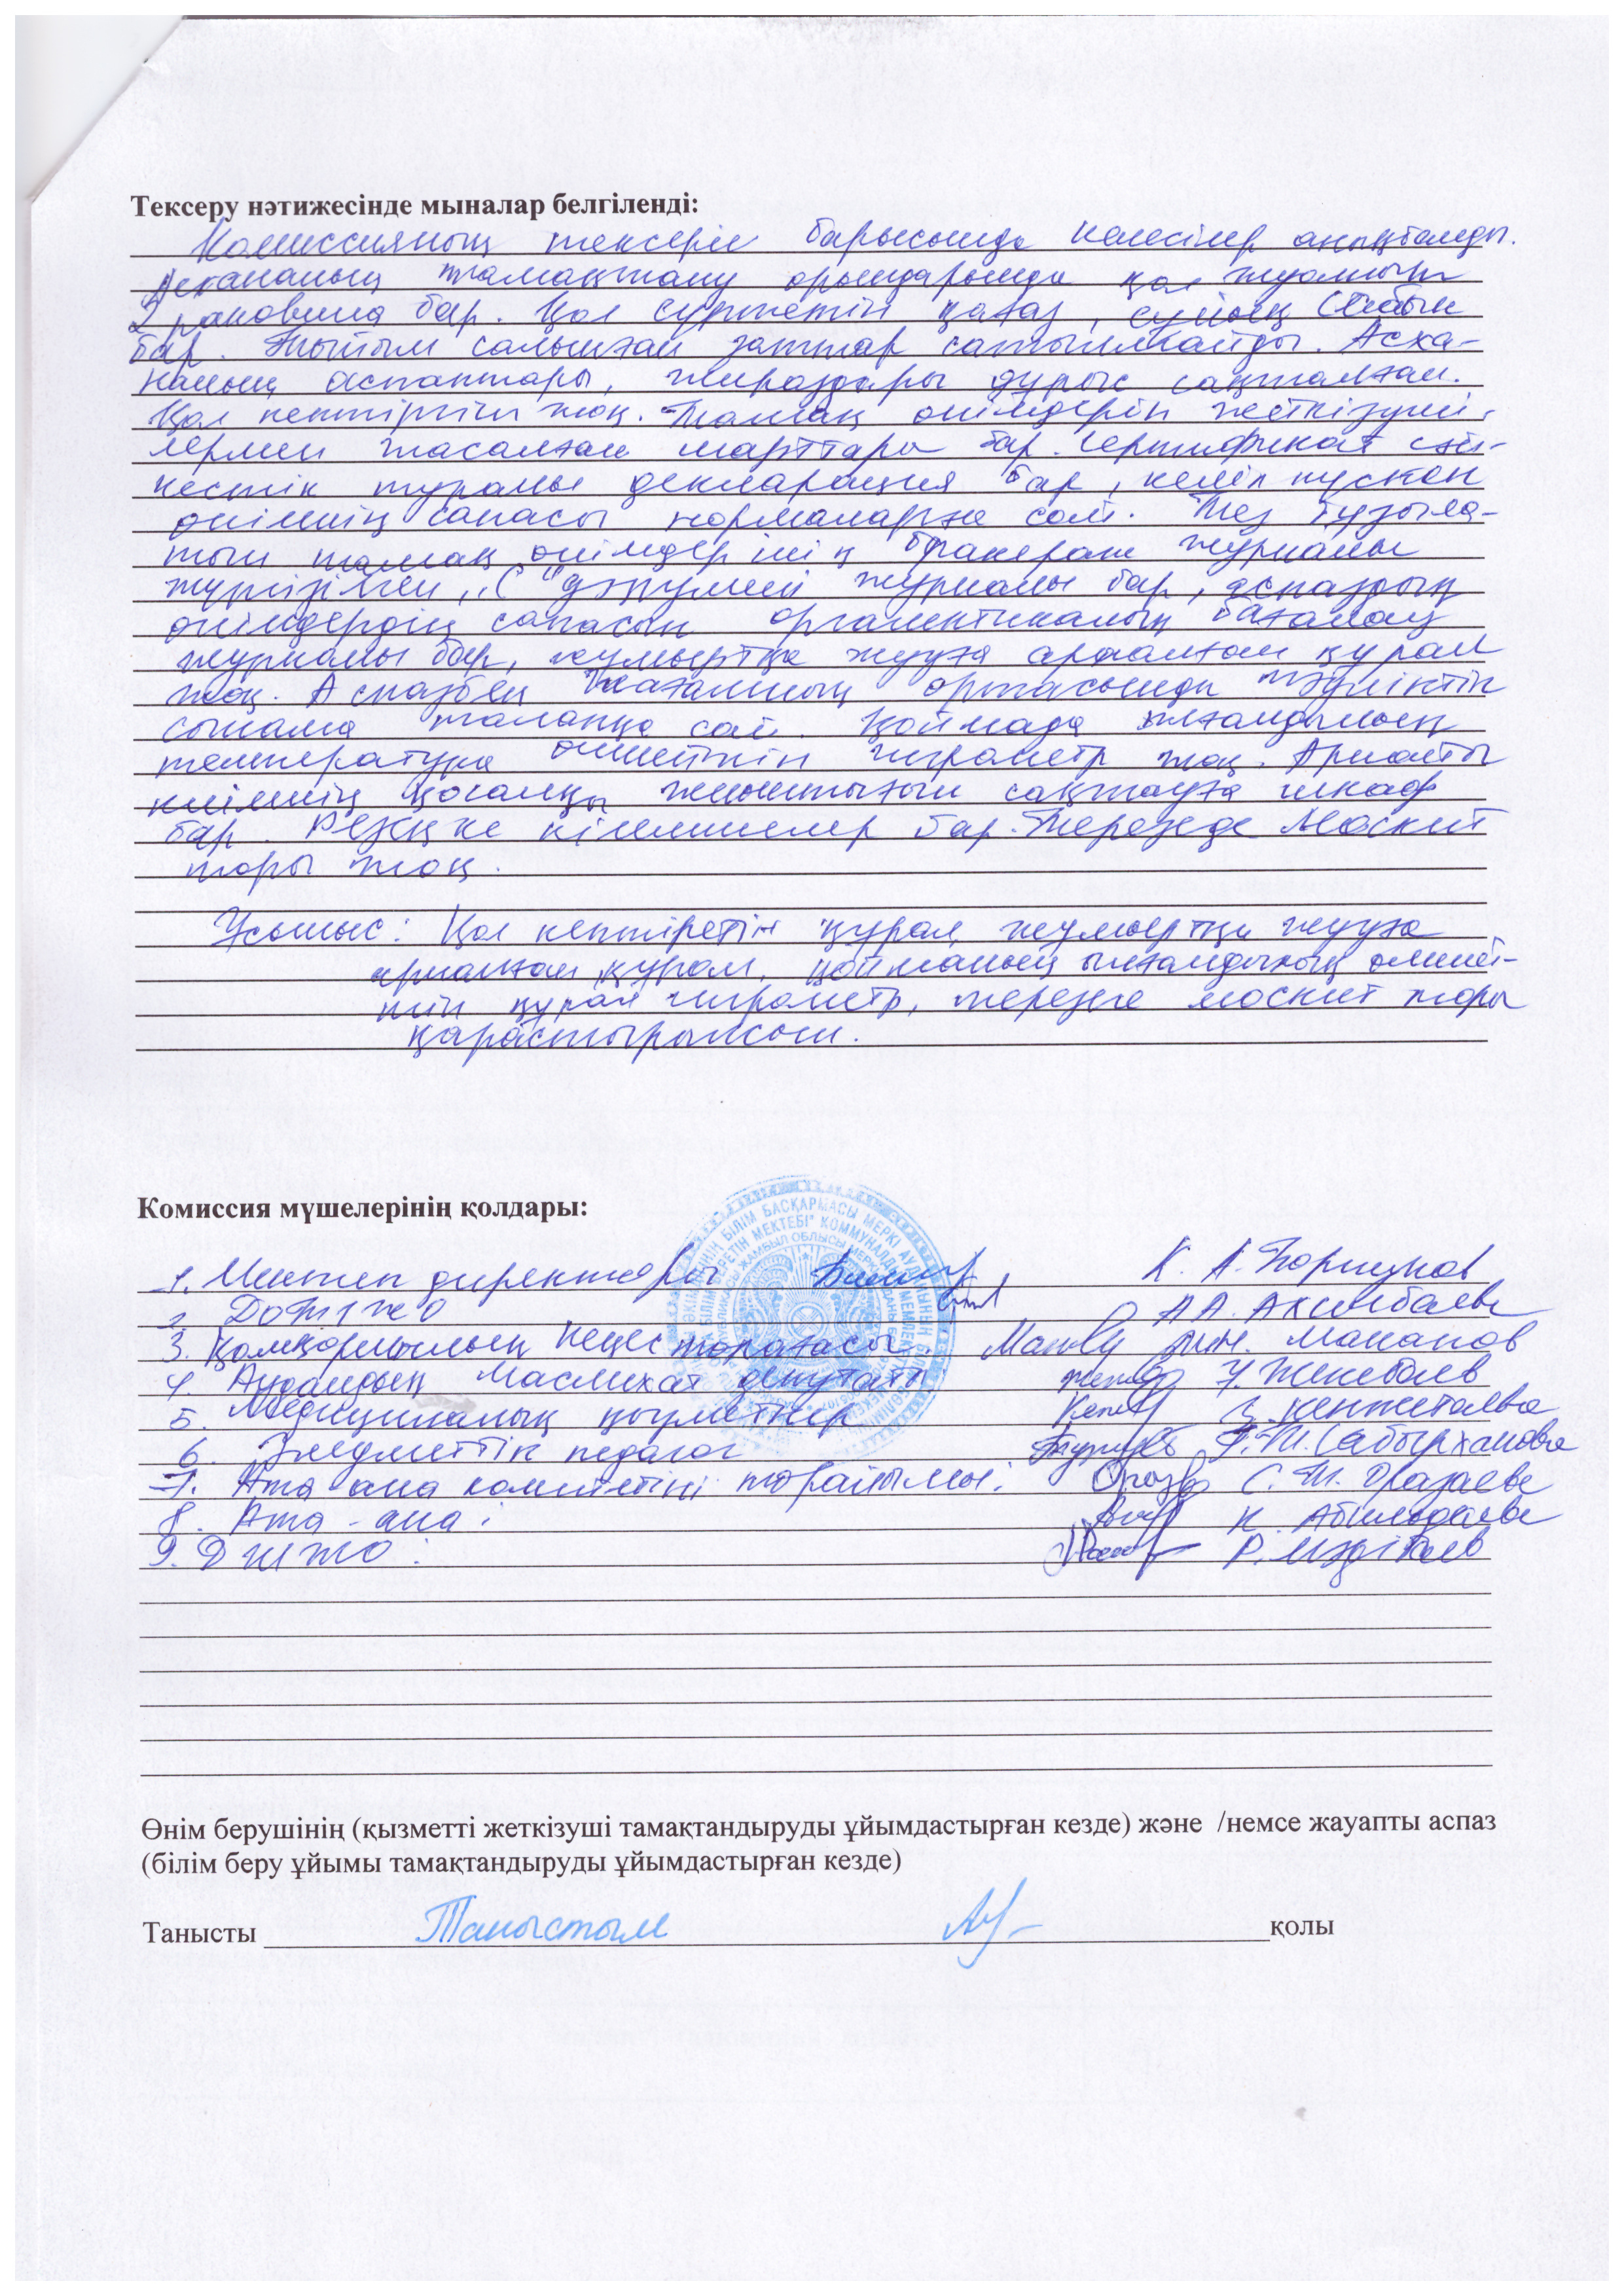 Тексеру нәтижесінде мыналар белгіленді:
Комиссияның тексеріп барысында келесілер анықталды.
Асхананың тамақтану орындарында қол жуатын
2 раковина бар. Қол сүртетін қағаз, сұйық сабын
бар. Тыйым салынған заттар сатылмайды. Асха-
наның аспаптары, жираздары дұрыс сақталған.
Қол кептіргіш жоқ. Тамақ өнімдерін жеткізуші-
лермен жасалған шарттары бар. Сертификат сәй-
кестік туралы декларация бар, келіп түскен
өнімнің сапасы нормаларға сай. Тез бұзыла-
тын тамақ өнімдерінің бракераж журналы
жүргізілген, "С" дәрумені журналы бар, аспаздың
өнімдердің сапасын органлептикалық бағалау
журналы бар, жұмыртқа жууға арналған құрал
жоқ. Аспазбен тағамның ортасында тәуліктік
сынама талапқа сай. Қоймада ылғалдылық
температура өлшейтін гигрометр жоқ. Арнайы
киімнің қосалқы жиынтығын сақтауға шкаф
бар. Резеңке кілемшелер бар. Терезеде москит
торы жоқ.
Ұсыныс: Қол кептіретін құрал, жұмыртқа жууға
арналған құрал, қойманың ылғалдылық өлшей-
тін құрал гигрометр, терезеге москит торы
қарастырылсын.
Комиссия мүшелерінің қолдары:
1. Мектеп директоры К. А.
2. ДОТІЖО А А. Акимбаева
3. Қамқоршылық Кеңес төрағасы. Маканов
4. Ауданның Маслихат депутаты У. Жекебаев
5. Медициналық қызметкер Г. Кенжетаева
6. Әлеуметтік педагог Г. Т. Сабырханова
7. Ата ана комитетінің төрайымы: С. Т. Оразаева
8. Ата-ана: К. Абильдаева
9. ДШЖО: Р.
Өнім берушінің (қызметті жеткізуші тамақтандыруды ұйымдастырған кезде) және /немсе жауапты аспаз
(білім беру ұйымы тамақтандыруды ұйымдастырған кезде)
Танысты Таныстым қолы